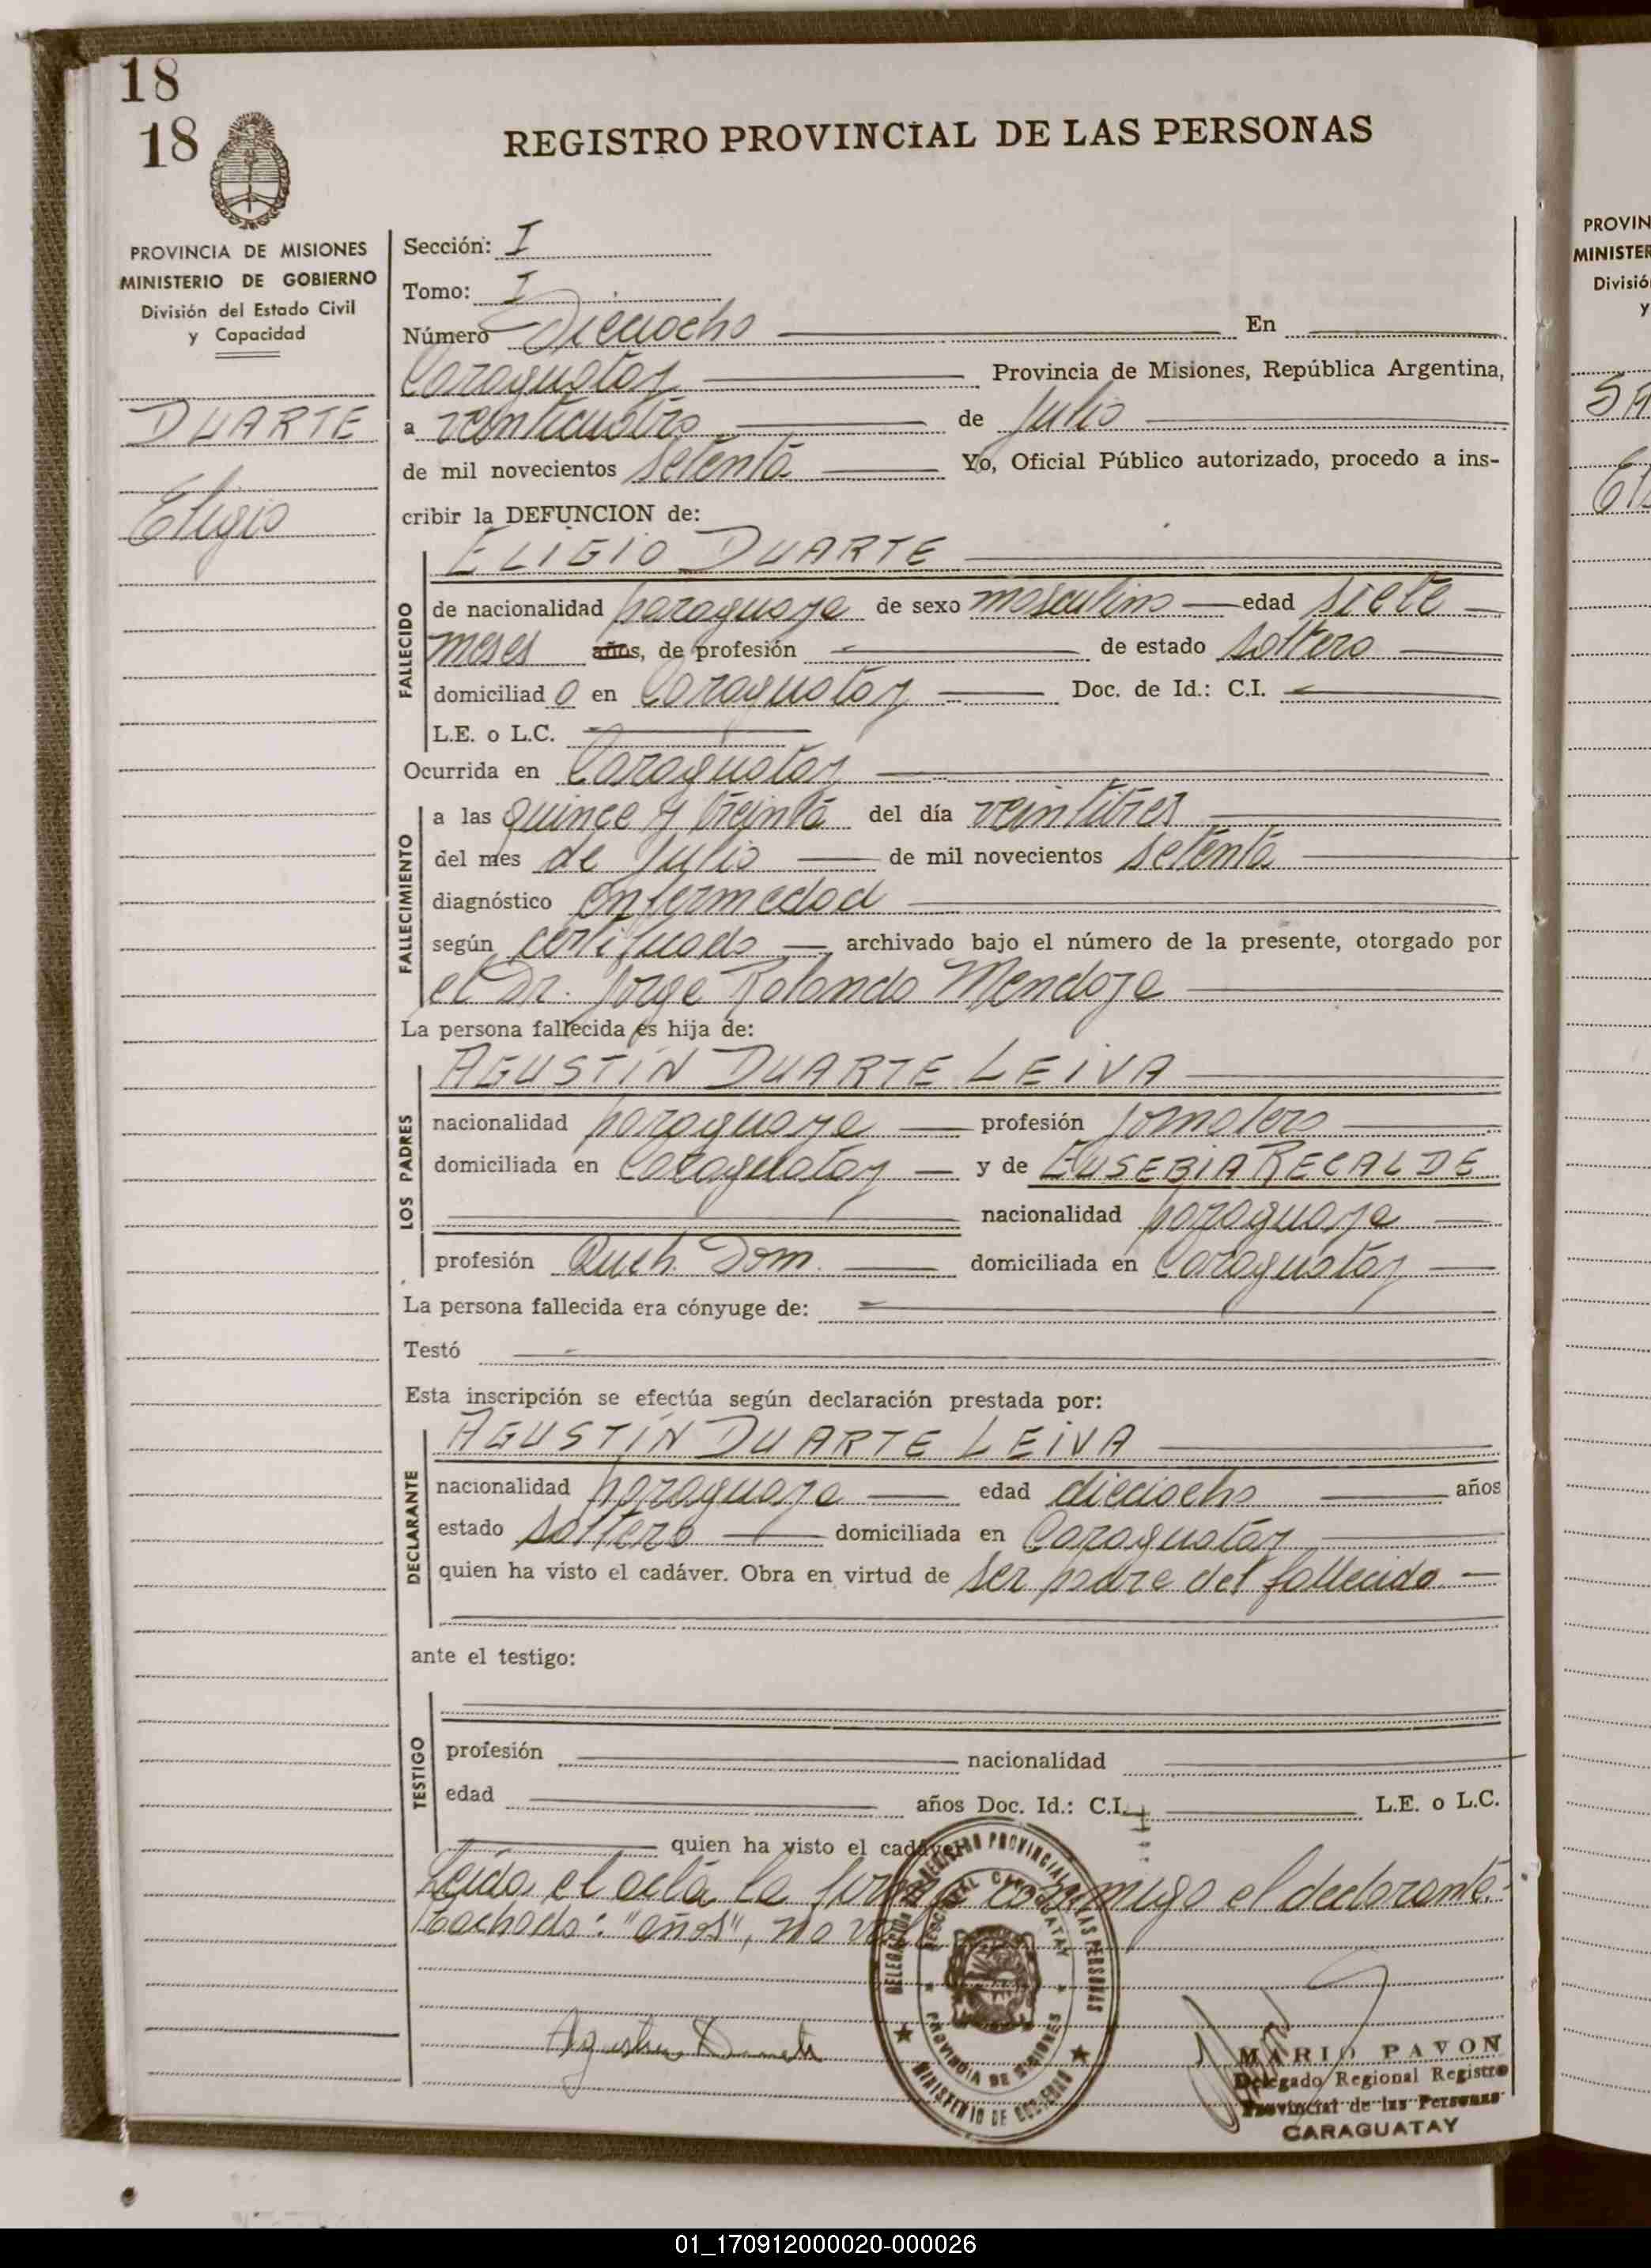 18
18
REGISTRO PROVINCIAL DE LAS PERSONAS
PROVINCIA DE MISIONES
MINISTERIO DE GOBIERNO
División del Estado Civil
y Capacidad
DUARTE
Eligio
Sección: I
Tomo: I
Número Dieciocho En
Caraguatay Provincia de Misiones, República Argentina,
a veinticuatro de Julio
de mil novecientos setenta Yo, Oficial Público autorizado, procedo a ins-
cribir la DEFUNCION de:
ELIGIO DUARTE
FALLECIDO
de nacionalidad paraguaya de sexo masculino edad siete
meses años, de profesión de estado soltero
domiciliado en Caraguatay Doc. de Id.: C.I.
L.E. o L.C.
Ocurrida en Caraguatay
FALLECIMIENTO
a las quince y treinta del día veintitres
del mes de Julio de mil novecientos setenta
diagnóstico enfermedad
según certificado archivado bajo el número de la presente, otorgado por
el Dr. Jorge Rolando Mendoza
La persona fallecida es hija de:
LOS PADRES
AGUSTÍN DUARTE LEIVA
nacionalidad paraguaya profesión jornalero
domiciliada en Caraguatay y de EUSEBIA RECALDE
nacionalidad paraguaya
profesión Queh. Dom. domiciliada en Caraguatay
La persona fallecida era cónyuge de:
Testó
Esta inscripción se efectúa según declaración prestada por:
DECLARANTE
AGUSTÍN DUARTE LEIVA
nacionalidad paraguaya edad dieciocho años
estado soltero domiciliada en Caraguatay
quien ha visto el cadáver. Obra en virtud de ser padre del fallecido
ante el testigo:
TESTIGO
profesión nacionalidad
edad años Doc. Id.: C.I. L.E. o L.C.
quien ha visto el cadáver
Leída el acta la firma conmigo el declarante.
Tachado: "años", no vale
DELEGACION REGISTRO PROVINCIAL DE LAS PERSONAS
SECCIONAL CARAGUATAY
PROVINCIA DE MISIONES
MINISTERIO DE GOBIERNO
Agustin Duarte
MARIO PAVON
Delegado Regional Registro
Provincial de las Personas
CARAGUATAY
PROVIN
MINISTER
Divisió
y
01_170912000020-000026